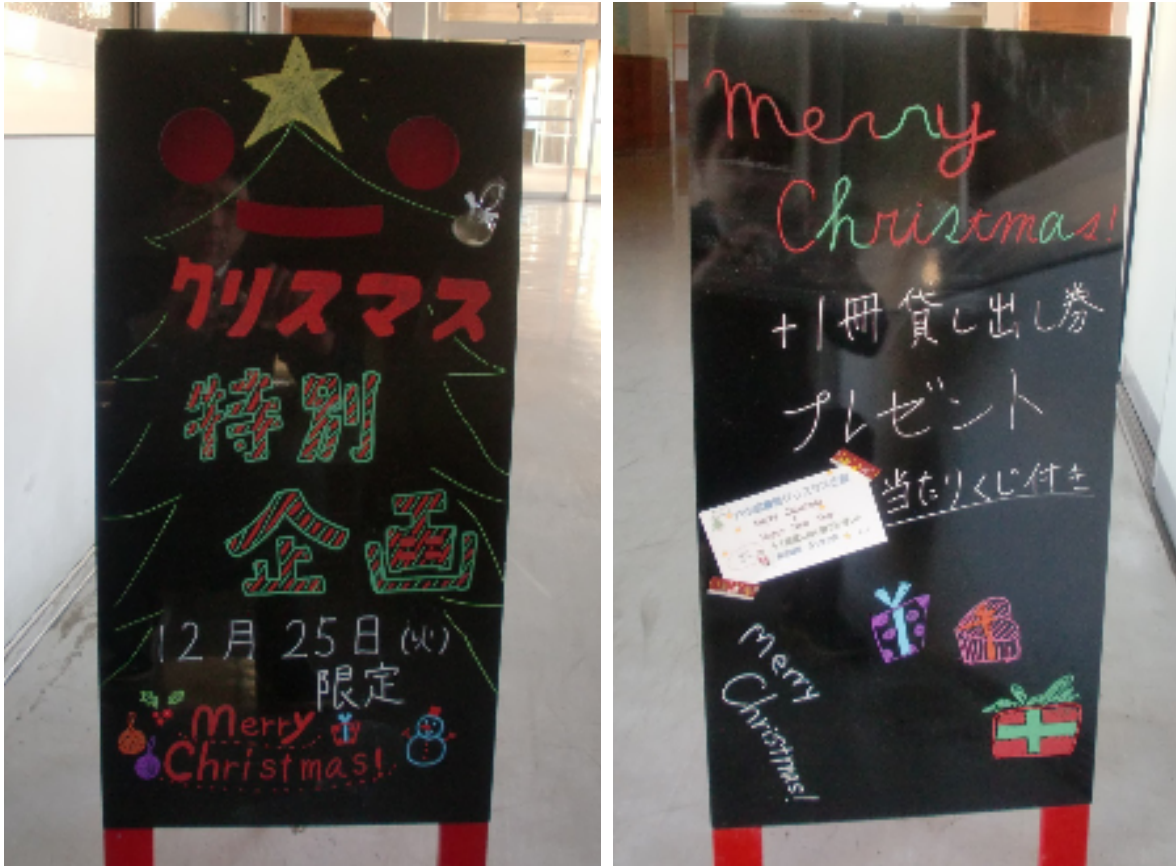 クリスマス
特別
企画
12月25日(火)
限定
Merry
Christmas!
Merry
Christmas!
+1冊貸し出し券
プレゼント
当たりくじ付き
Merry
Christmas!